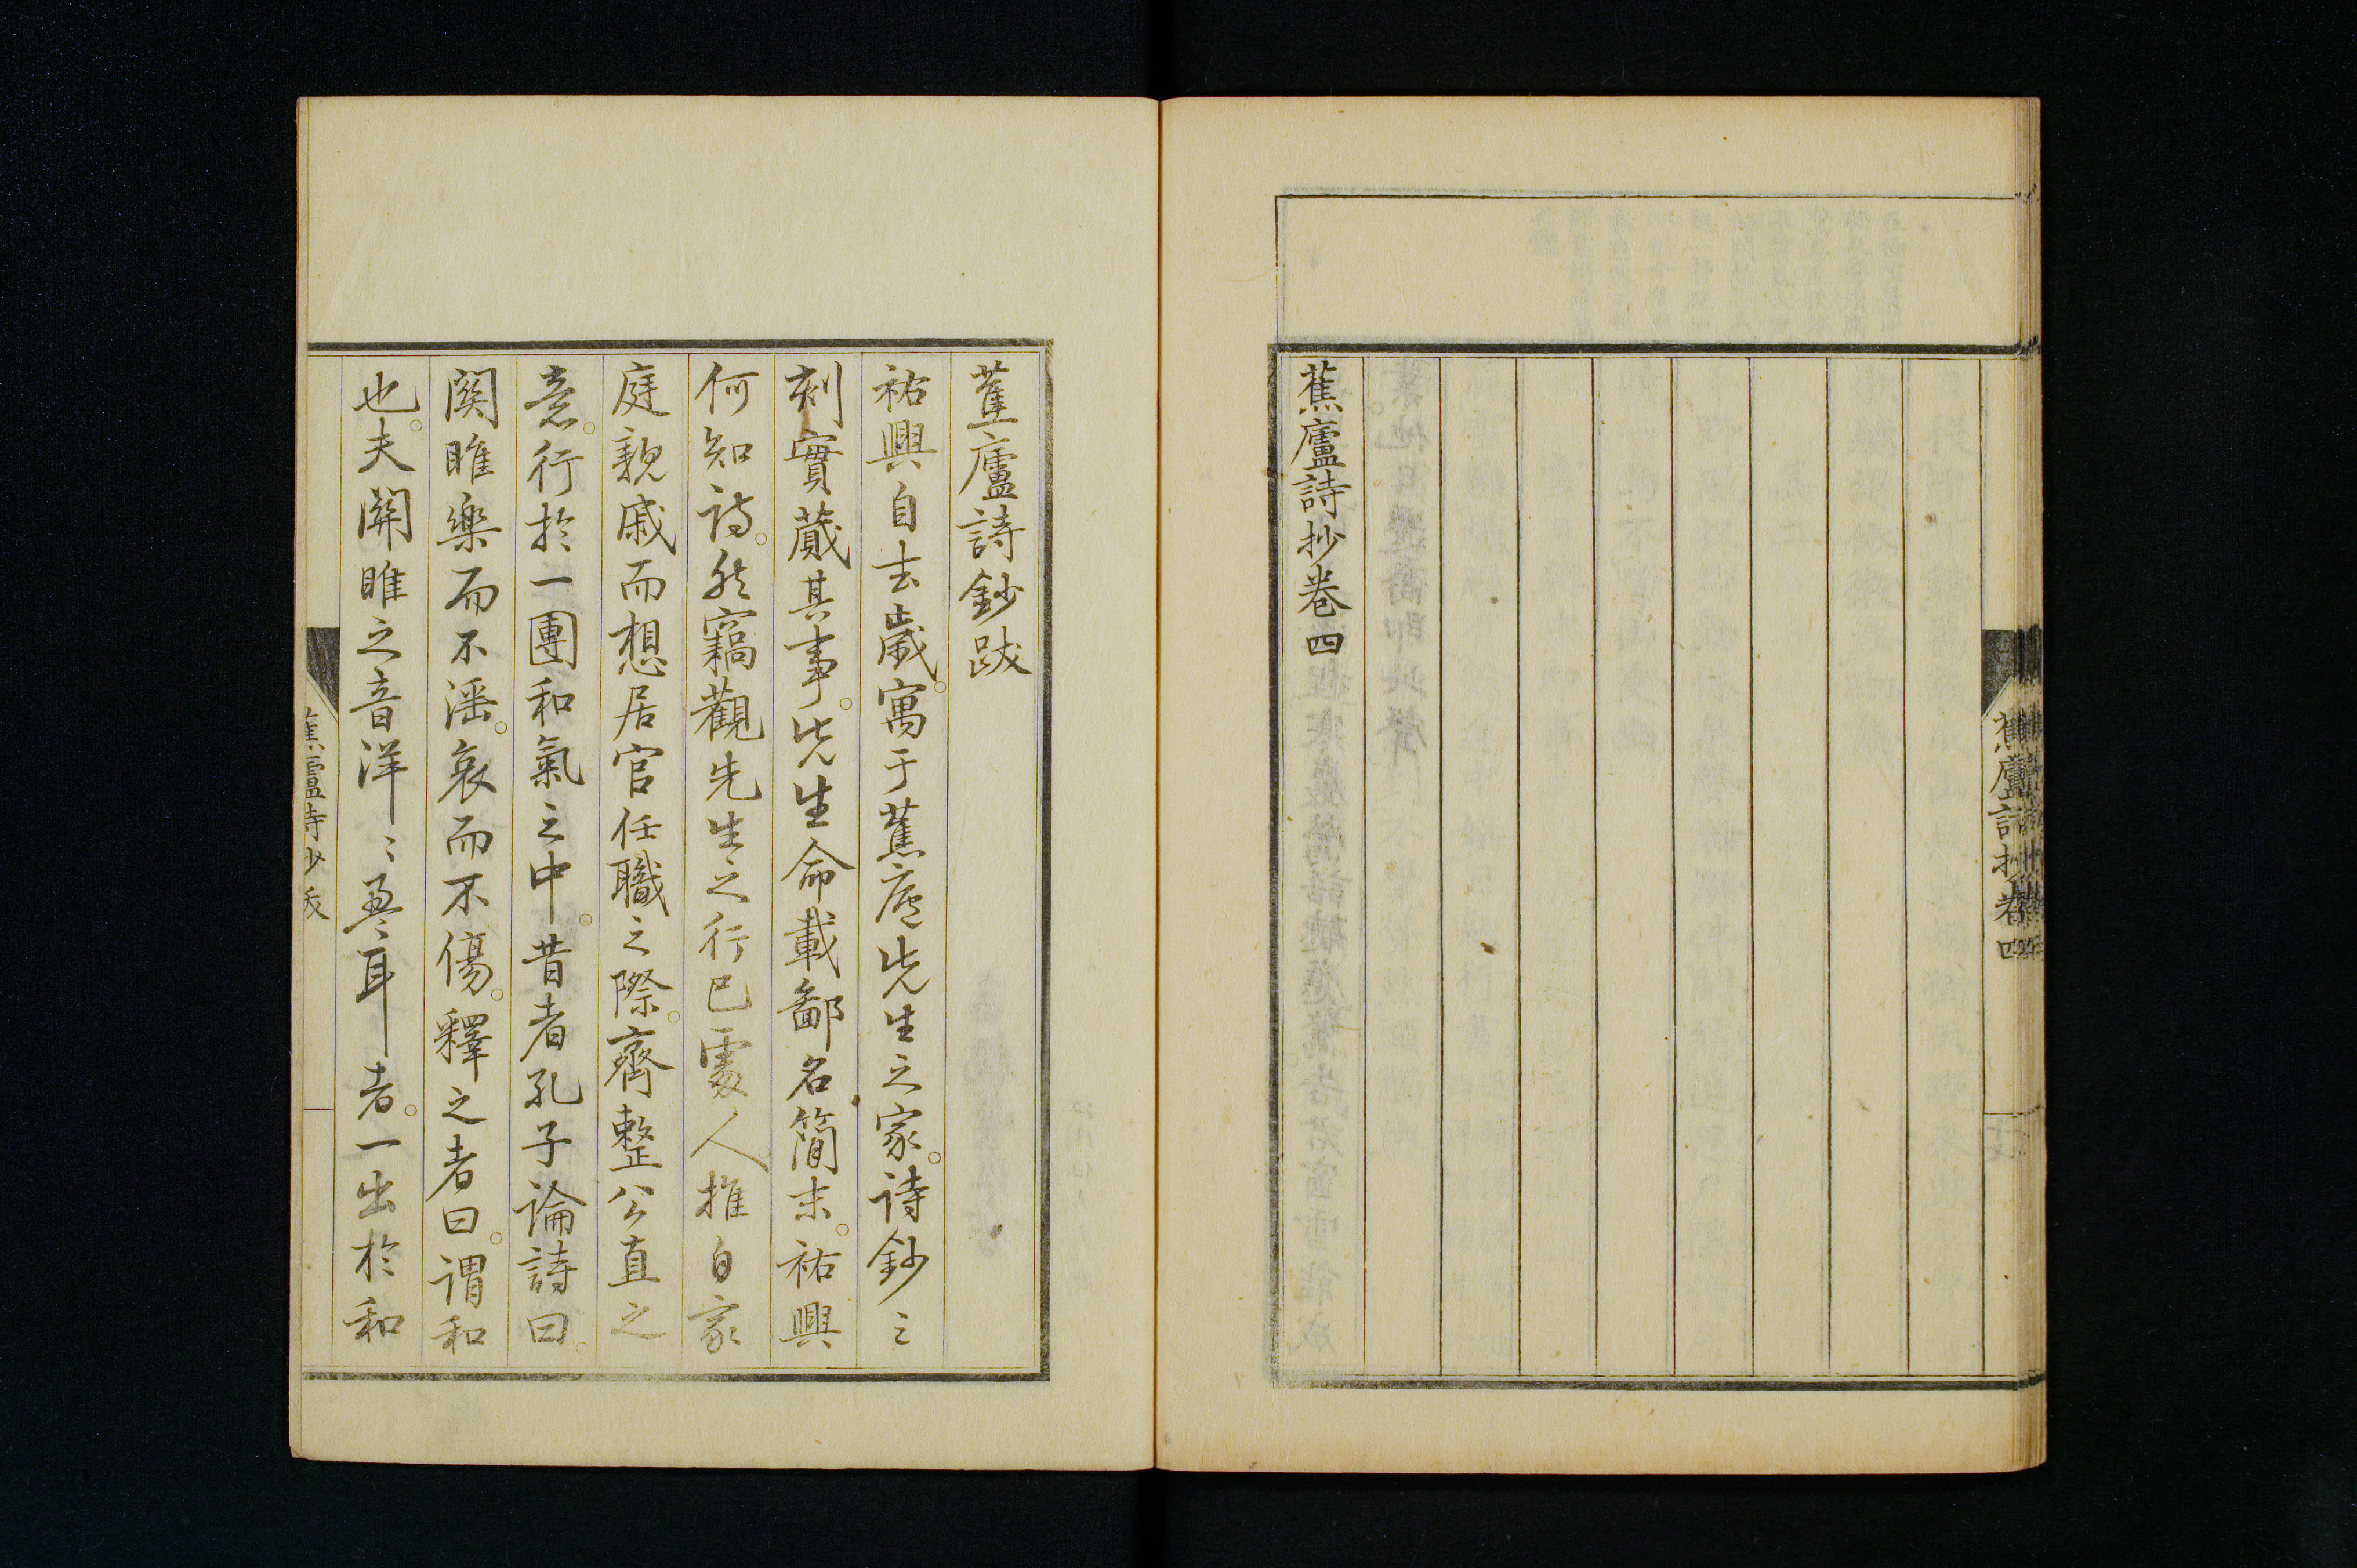 蕉廬詩抄卷四
蕉廬詩抄卷四
蕉廬詩鈔跋
祐興自去歲。寓于蕉廬先生之家。詩鈔之
刻實蕆其事。先生命載鄙名簡末。祐興
何知詩。然竊觀先生之行己處人。推自家
庭親戚而想居官任職之際。齊整公直之
意。行於一團和氣之中。昔者孔子論詩曰。
關雎樂而不淫。哀而不傷。釋之者曰。謂和
也。夫關雎之音洋〻盈耳者。一出於和
蕉廬詩抄跋